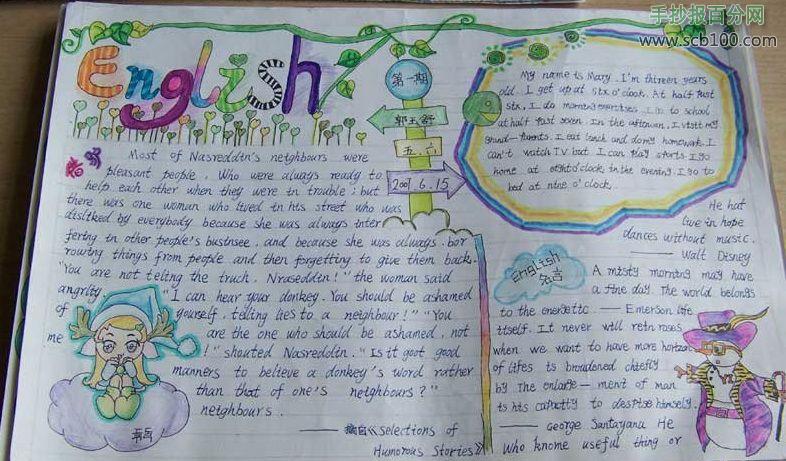 手抄报百分网
www.scb100.com
English
第一期
郭玉舒
五.六
2007.6.15
Most of Nasreddin's neighbours were
pleasant people. Who were always ready to
help each other when they were in trouble; but
there was one woman who lived in his street who was
disliked by everybody because she was always inter
fering in other people's bustnsee. and because she was always bor
rowing things from people and then forgetting to give them back.
"You are not teling the truch. Nraseddin!" the woman said
angrlity "I can hear your donkey. You should be ashamed
of yourself. teling lies to a neighbour!" "You
are the one who should be ashamed, not
me !" shouted Nasreddin. "Is it goot good
manners to believe a donkey's word rather
than that of one's neighbours?"
neighbours.
—— 摘自《Selections of
Humorous Stories》
My name is Mary. I'm thireen years
old. I get up at stx o'clock. At half past
stx, I do morning exercises. I go to school
at half past seven. In the afternoon, I visit my
grand-parents. I eat lunch and do my homework. I
can't watch TV but I can play sports. I go
home at eight o'clock in the evening. I go to
bed at nine o'clock.
He hat
live in hope
dances without music.
—— Walt Disney
English
名言
A misty morning may have
a fine day. The world belongs
to the energetic. —— Emerson life
itself. It never will retn roses
when we want to have more horizon
of lifes is broadened chiefly
by the enlarge — ment of man
is his capacity to despise himself.
—— George Santayanu He
Who knome useful thing or